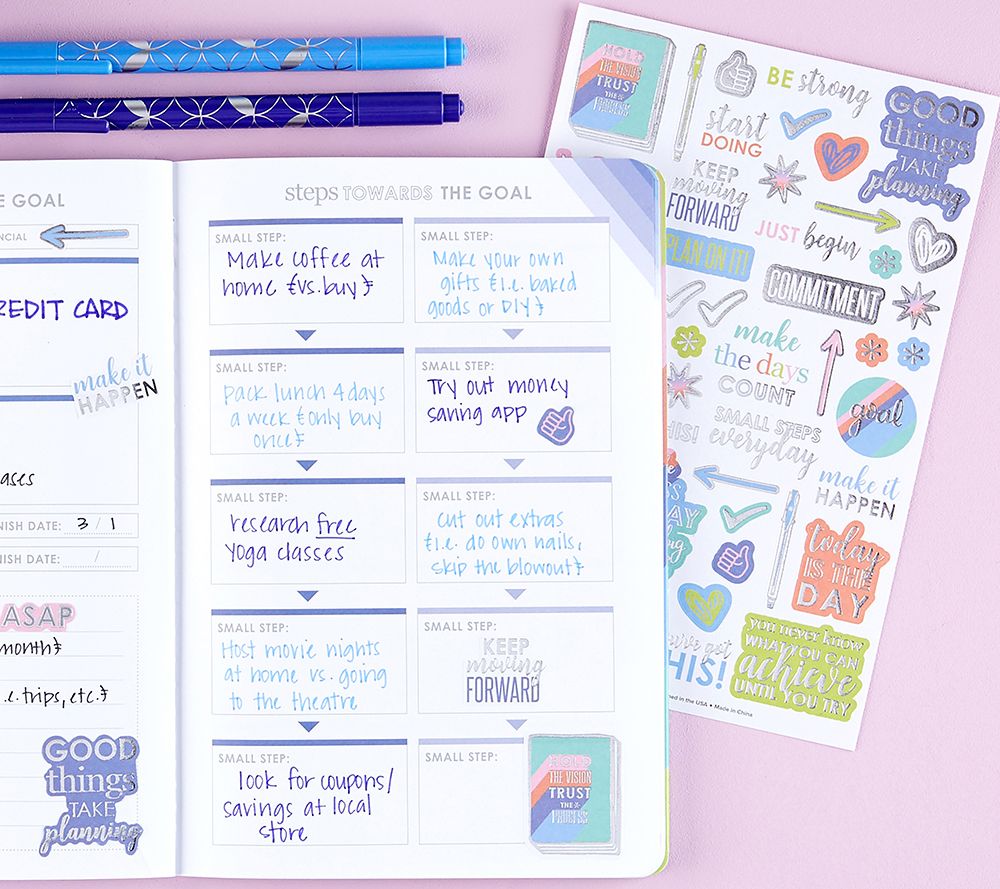 E GOAL
NCIAL
REDIT CARD
make it
HAPPEN
ases
NISH DATE: 3 / 1
NISH DATE: /
ASAP
month}
i.e. trips, etc.}
GOOD
things
TAKE
planning
steps TOWARDS THE GOAL
SMALL STEP:
Make coffee at
home {vs. buy}
SMALL STEP:
Make your own
gifts {i.e. baked
goods or DIY}
SMALL STEP:
pack lunch 4 days
a week {only buy
once}
SMALL STEP:
Try out money
saving app
SMALL STEP:
research free
yoga classes
SMALL STEP:
cut out extras
{i.e. do own nails,
skip the blowout}
SMALL STEP:
Host movie nights
at home vs. going
to the theatre
SMALL STEP:
KEEP
moving
FORWARD
SMALL STEP:
look for coupons/
savings at local
store
SMALL STEP:
HOLD
THE VISION
TRUST
THE
PROCESS
HOLD
THE VISION
TRUST
THE
PROCESS
BE strong
start
DOING
GOOD
things
TAKE
planning
KEEP
moving
FORWARD
JUST begin
PLAN ON IT!
COMMITMENT
make
the days
COUNT
goal
HIS!
SMALL STEPS
everyday
make it
HAPPEN
today
IS THE
DAY
you've got
HIS!
you never know
WHAT YOU CAN
achieve
UNTIL YOU TRY
ned in the USA • Made in China